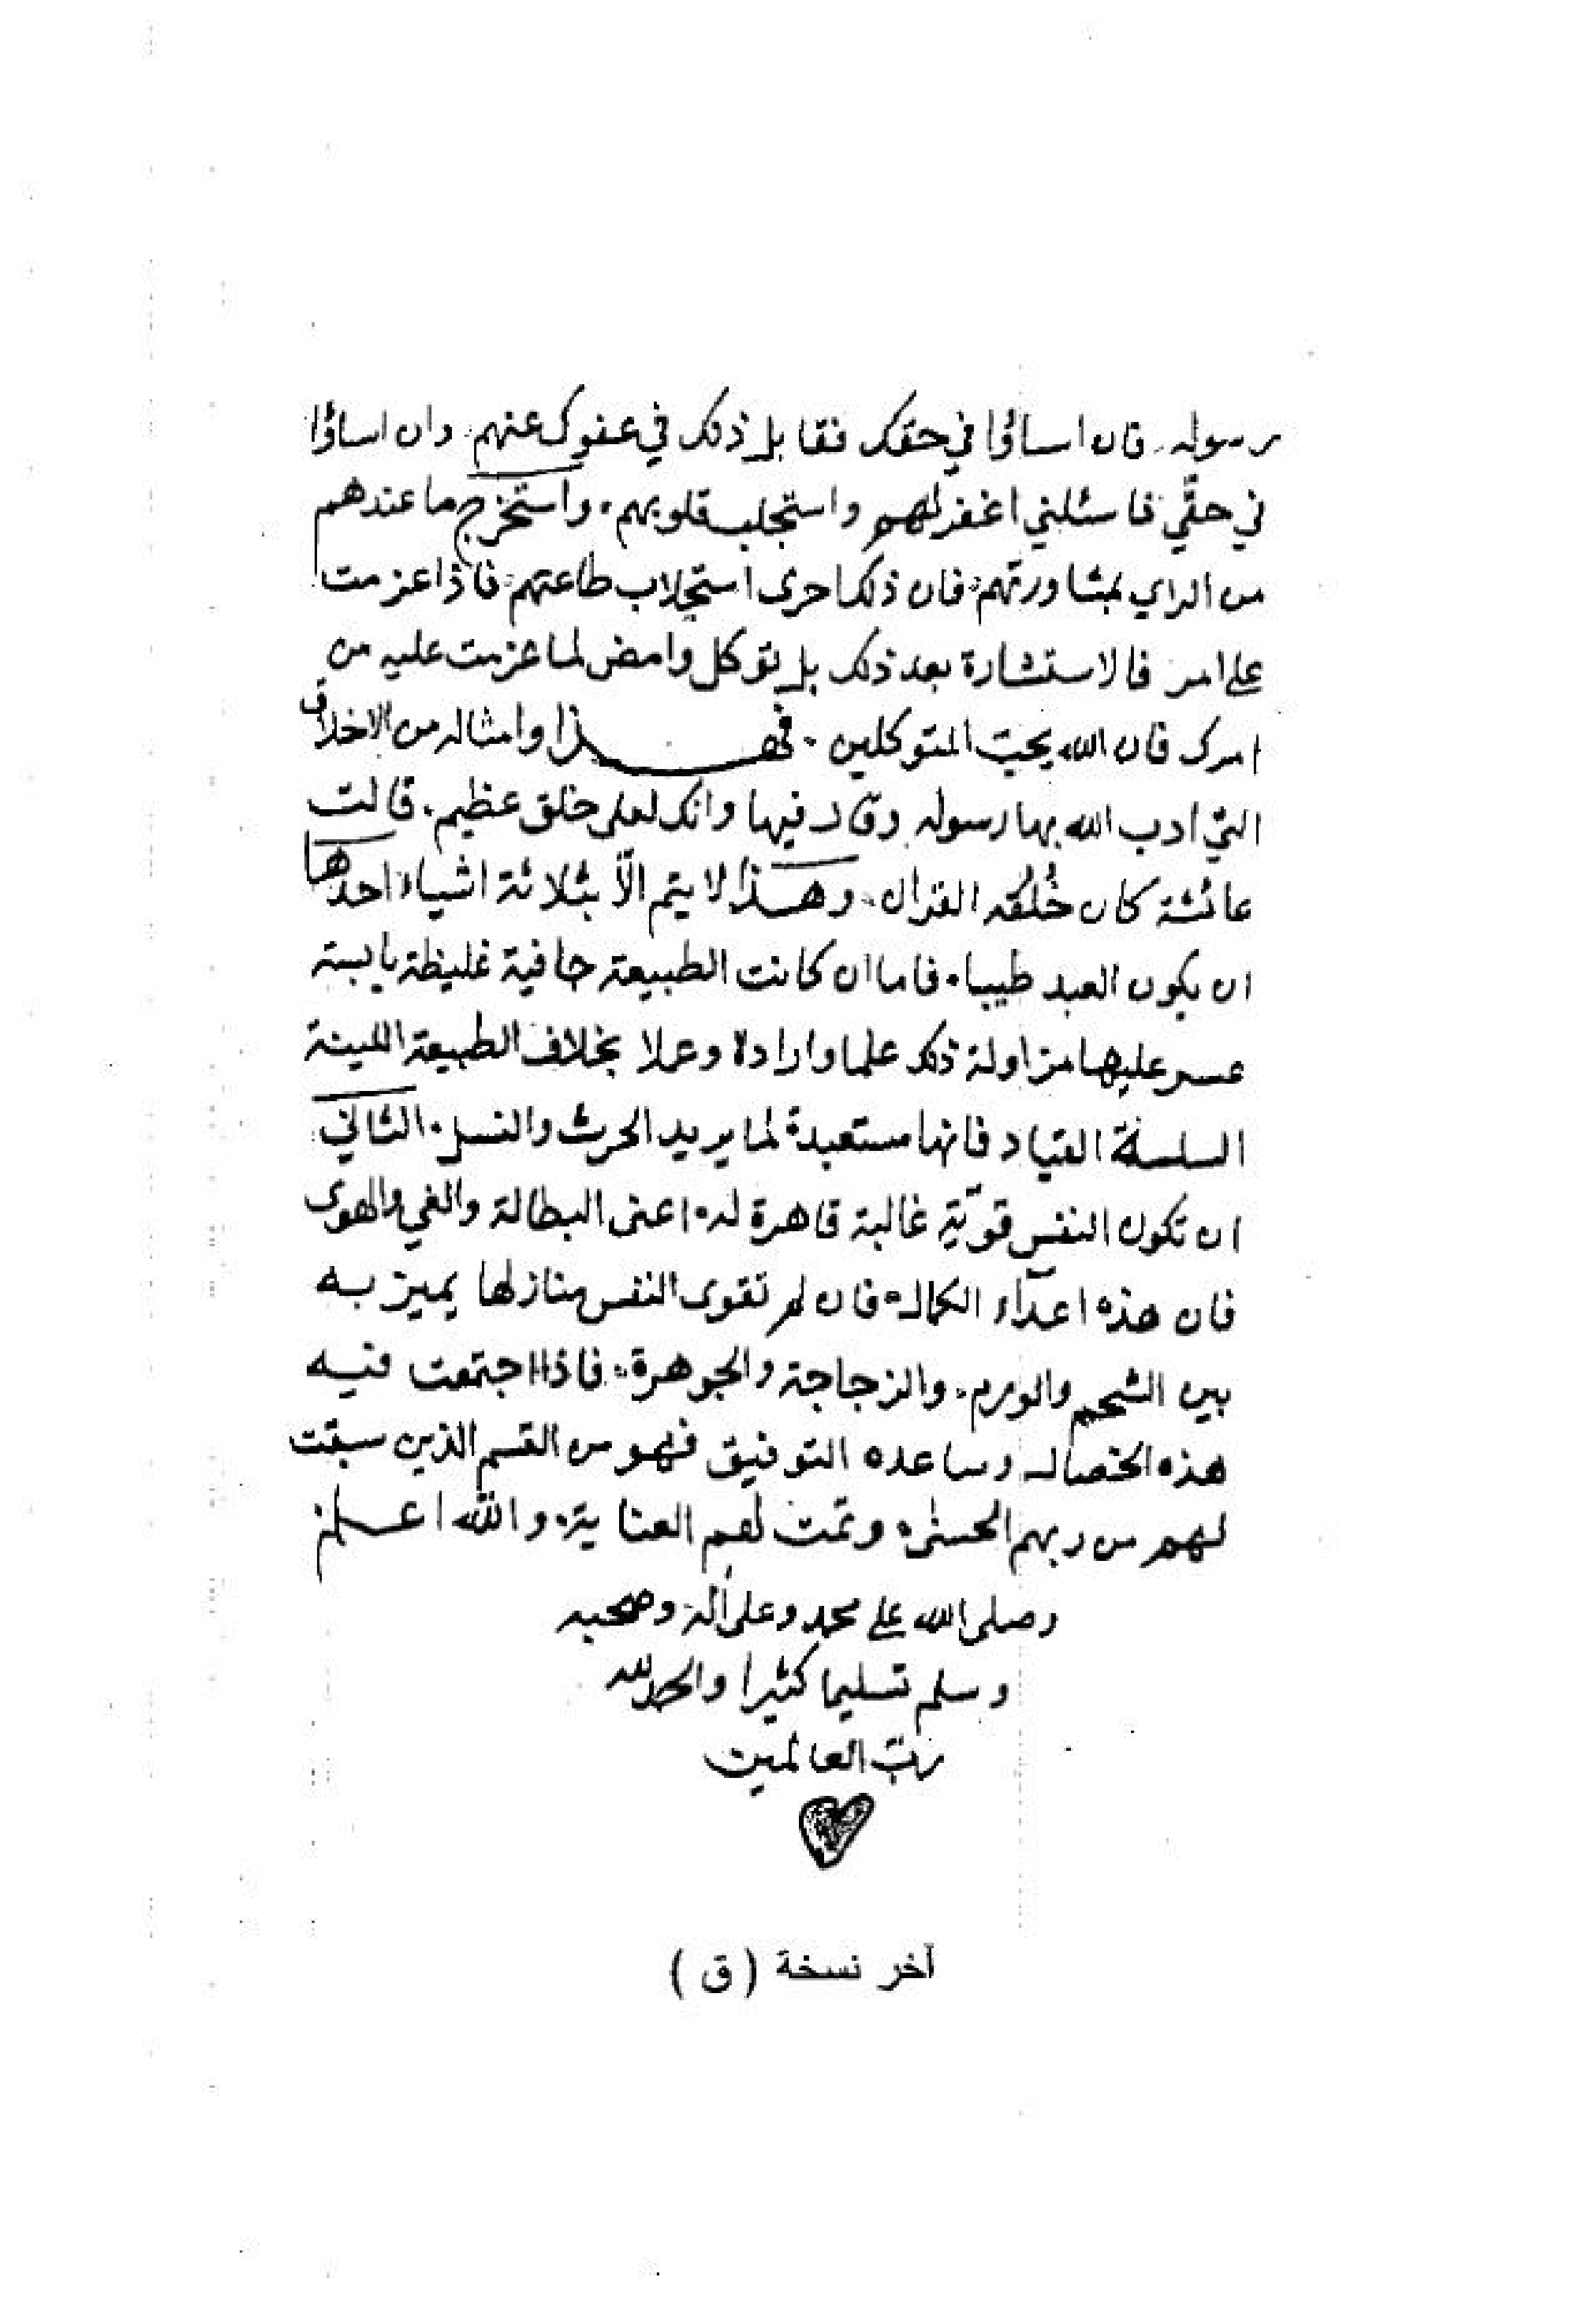 رسوله. فان اساؤا في حقك فقابل ذلك في عفوك عنهم. وان اساؤا
في حقّي فاسئلني اغفر لهم واستجلب قلوبهم. واستخرج ما عندهم
من الراي بمشاورتهم. فان ذلك احرى استجلاب طاعتهم. فاذا عزمت
على امر فالاستشارة بعد ذلك بل توكل وامض لما عزمت عليه من
امرك فان الله يحبّ المتوكلين. فهذا وامثاله من الاخلاق
التي ادب الله بها رسوله وقال فيها وانك لعلى خلق عظيم. قالت
عائشة كان خُلُقه القرآن. وهذا لا يتم الاّ بثلاثة اشياء احدها
ان يكون العبد طيبا. فاما ان كانت الطبيعة جافية غليظة يابسة
عسر عليها مزاولة ذلك علما وارادة وعملا بخلاف الطبيعة اللينة
السلسلة القياد فانها مستعبدة لما يريد الحرث والنسل. الثاني
ان تكون النفس قوّية غالبة قاهرة له اعنى البطالة والغي والهوى
فان هذه اعدآء الكمال. فان لم تقوى النفس منازلها يميز به
بين الشحم والورم. والزجاجة والجوهرة. فاذا اجتمعت فيه
هذه الخصال وساعده التوفيق فهو من القسم الذين سبقت
لهم من ربهم الحسنى. وتمت لهم العناية. والله اعلم
وصلى الله على محمد وعلى آله وصحبه
وسلم تسليما كثيرا والحمد لله
ربّ العالمين
آخر نسخة ( ق )